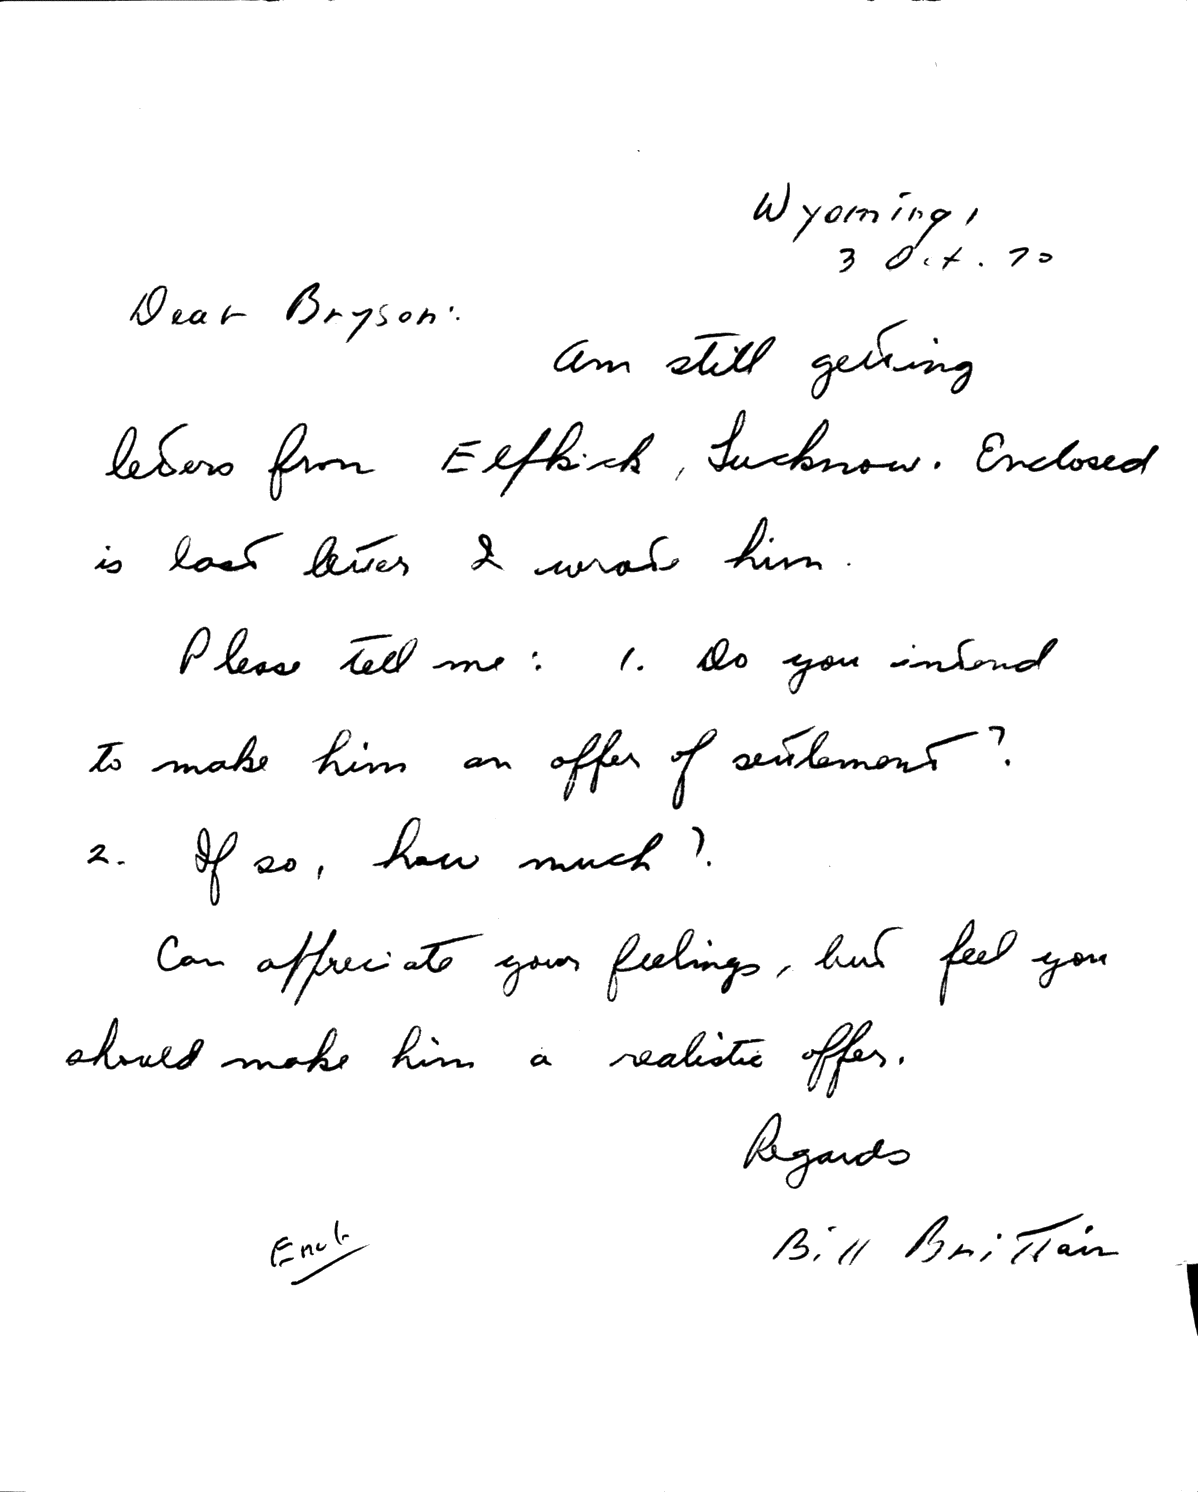 Wyoming,
3 Oct. 70
Dear Bryson:
Am still getting
letters from Elfkick, Lucknow. Enclosed
is last letter I wrote him.
Please tell me: 1. Do you intend
to make him an offer of settlement?
2. If so, how much?
Can appreciate your feelings, but feel you
should make him a realistic offer.
Regards
Bill Brittain
Encl